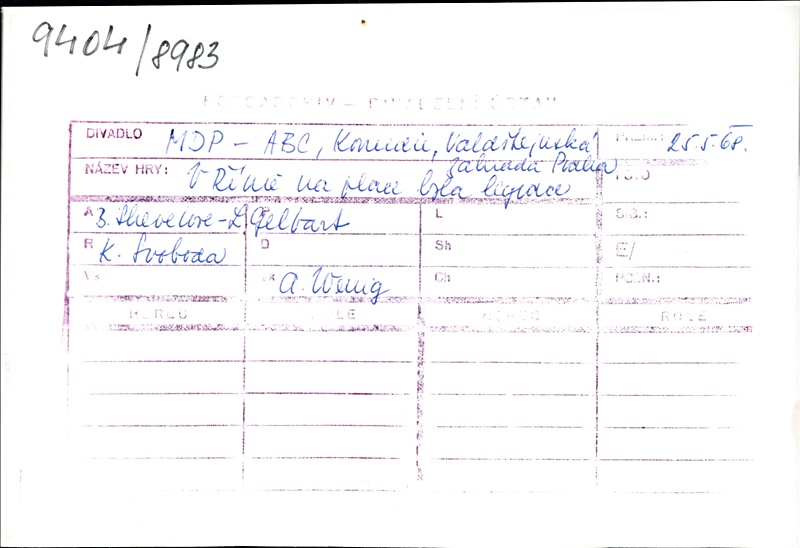 9404/8983
FOTOARCHIV – DIVADELNÍ ÚSTAV
DIVADLO MDP – ABC, Komedie, Valdštejnská PREM.: 25.5.68.
zahrada Praha
NÁZEV HRY: V Římě na place byla legrace
A B. Shevelove – L. Gelbart L
R K. Svoboda D Sh E/
A. Wenig Ch POZN.:
HEREC ROLE HEREC ROLE